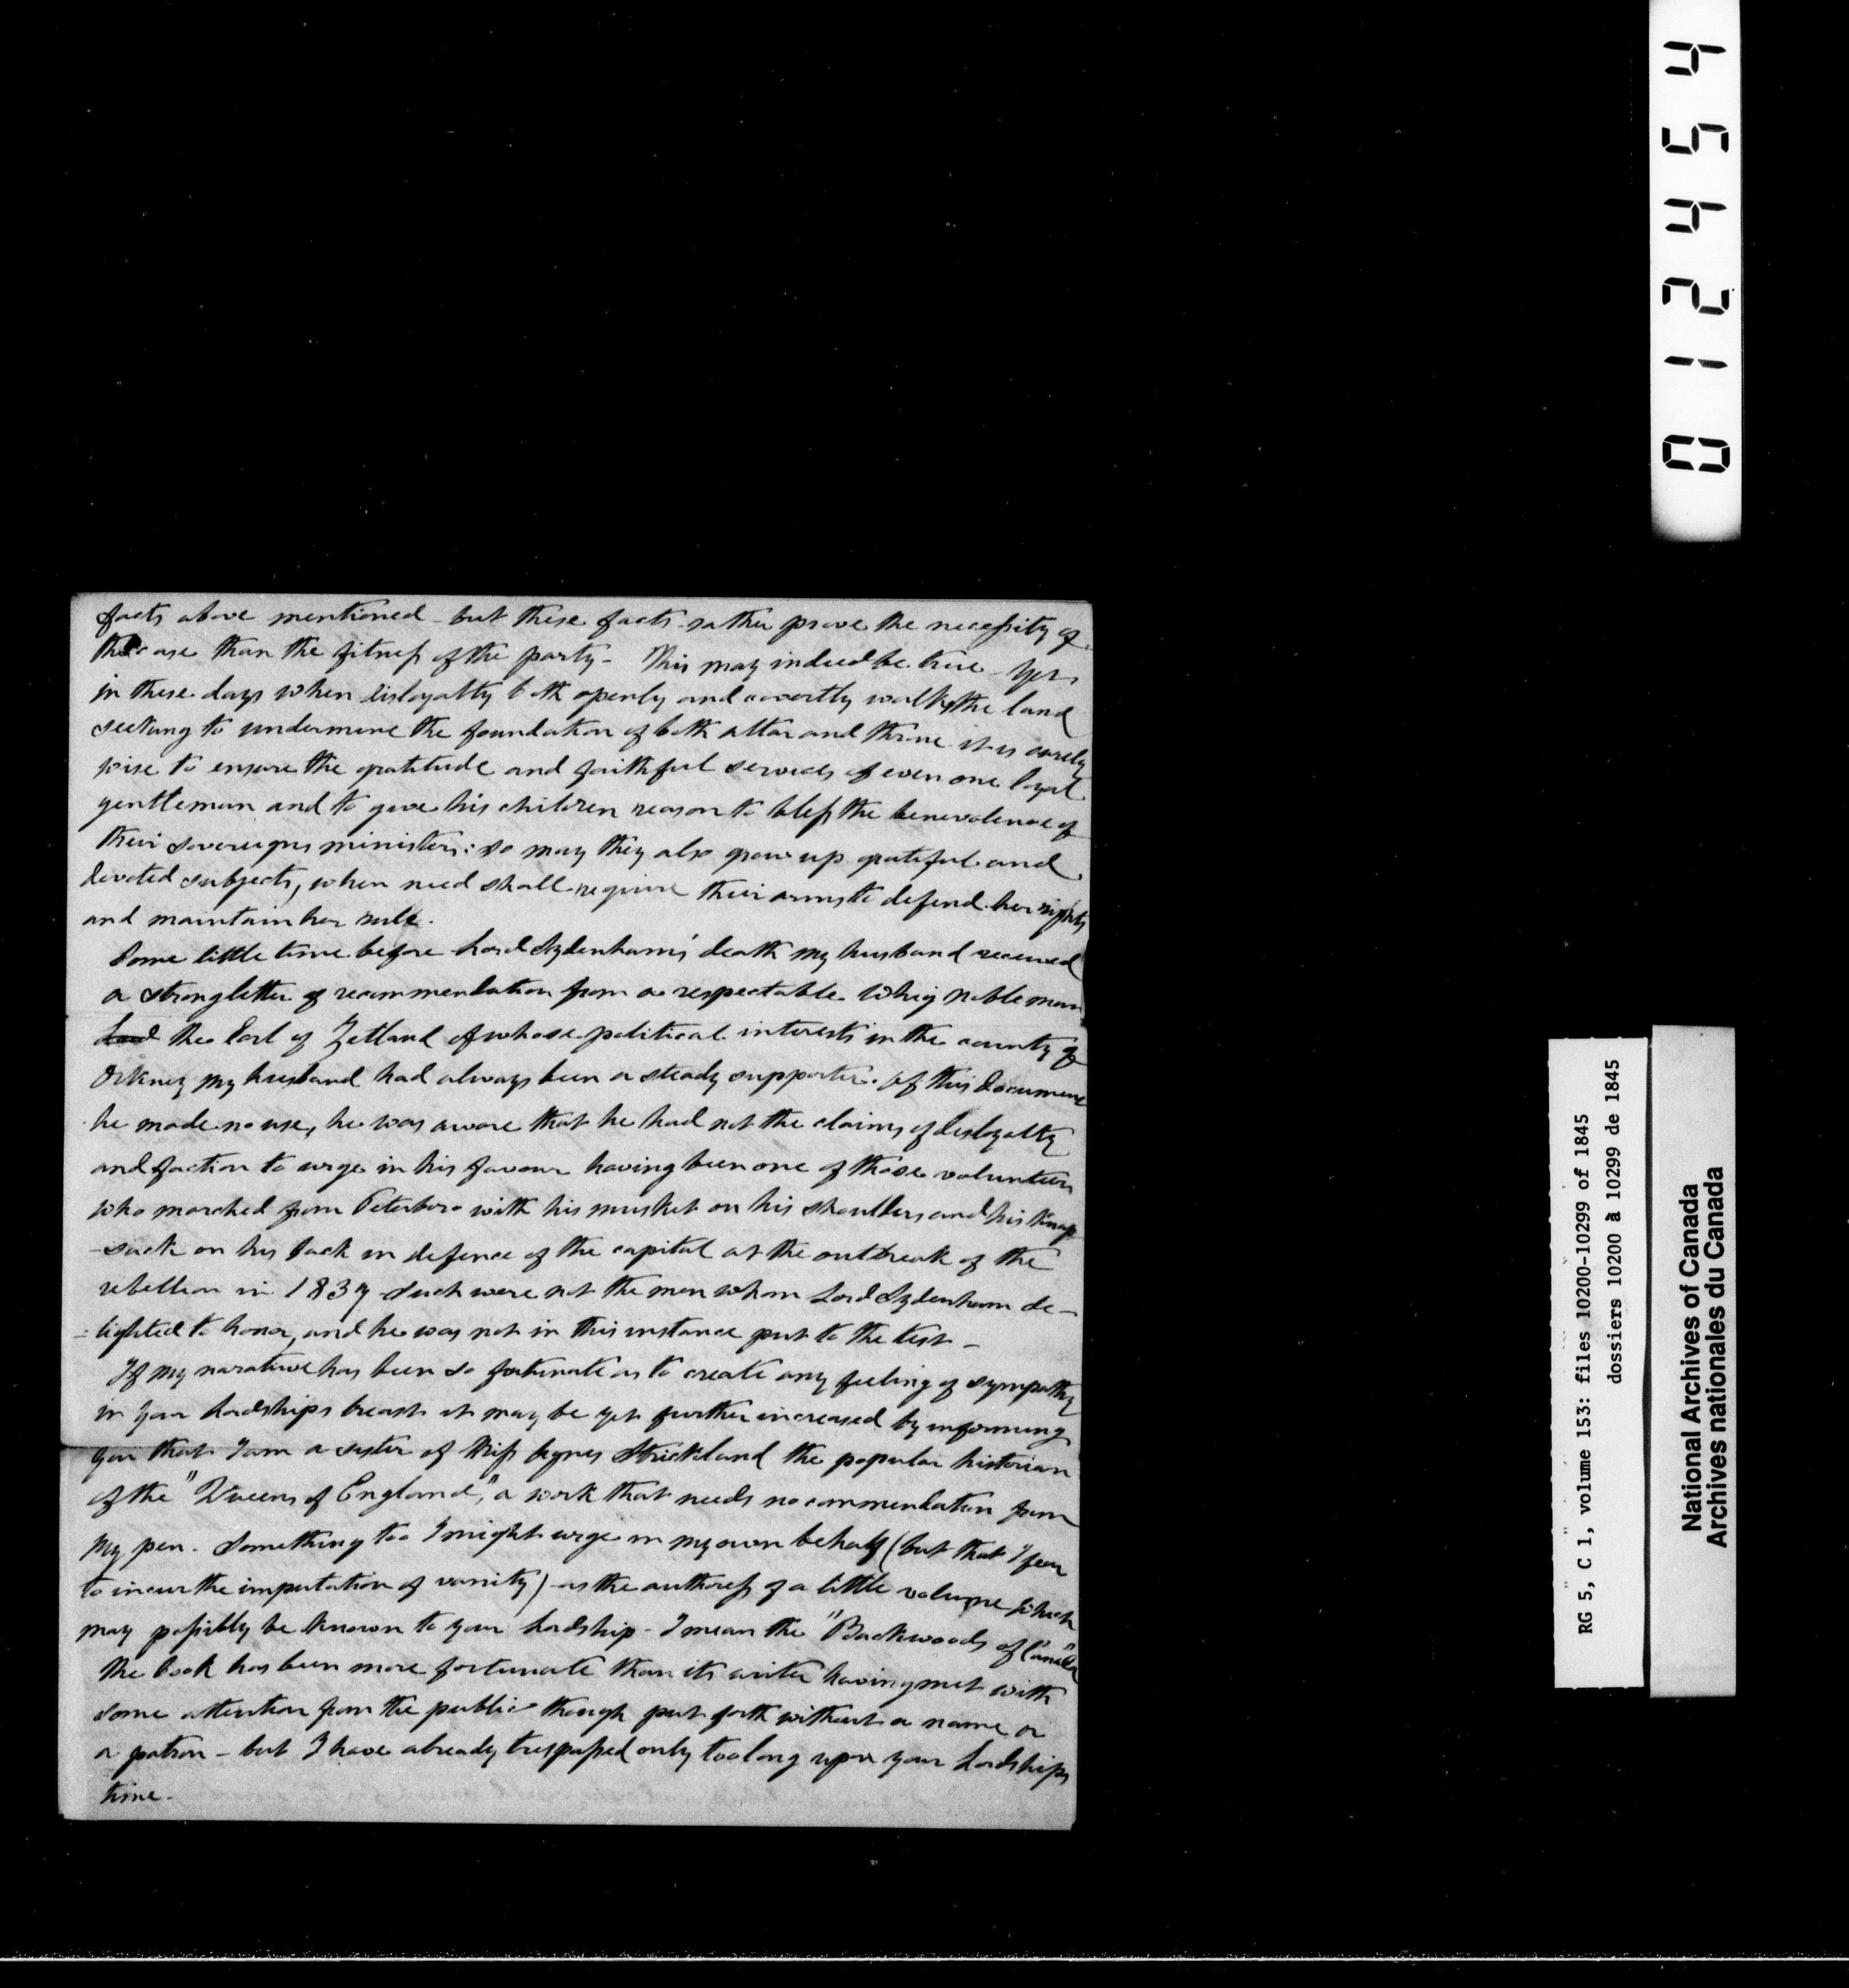 facts above mentioned - but these facts rather prove the necessity of
the case than the fitness of the party - This may indeed be true - Yet
in these days when disloyalty both openly and covertly walks the land
seeking to undermine the foundation of both altar and throne it is surely
wise to ensure the gratitude and faithful services of even one loyal
gentleman and to give his children reason to bless the benevolence of
their sovereigns ministers: so may they also grow up grateful and
devoted subjects, when need shall require their arms to defend her rights
and maintain her rule.
Some little time before Lord Sydenham's death my husband received
a strong letter of recommendation from a respectable Whig nobleman
Lord the Earl of Zetland of whose political interests in the county of
Orkney my husband had always been a steady supporter. Of this document
he made no use, he was aware that he had not the claims of disloyalty
and faction to urge in his favour having been one of those volunteers
who marched from Peterboro with his musket on his shoulders and his knap
-sack on his back in defence of the capital at the outbreak of the
rebellion in 1837 - Such were not the men whom Lord Sydenham de-
=lighted to honor, and he was not in this instance put to the test -
If my narative has been so fortunate as to create any feeling of sympathy
in your Lordships breast it may be yet further increased by informing
you that I am a sister of Miss Agnes Strickland the popular historian
of the "Queens of England," a work that needs no commendation from
my pen. Something too I might urge in my own behalf (but that I fear
to incur the imputation of vanity) - as the authoress of a little volume which
may possibly be known to your Lordship - I mean the "Backwoods of Canada"
The book has been more fortunate than its writer having met with
some attention from the public though put forth without a name or
a patron - but I have already trespassed only too long upon your Lordships
time -
012454
RG 5, C 1, volume 153: files 10200-10299 of 1845
dossiers 10200 à 10299 de 1845
National Archives of Canada
Archives nationales du Canada